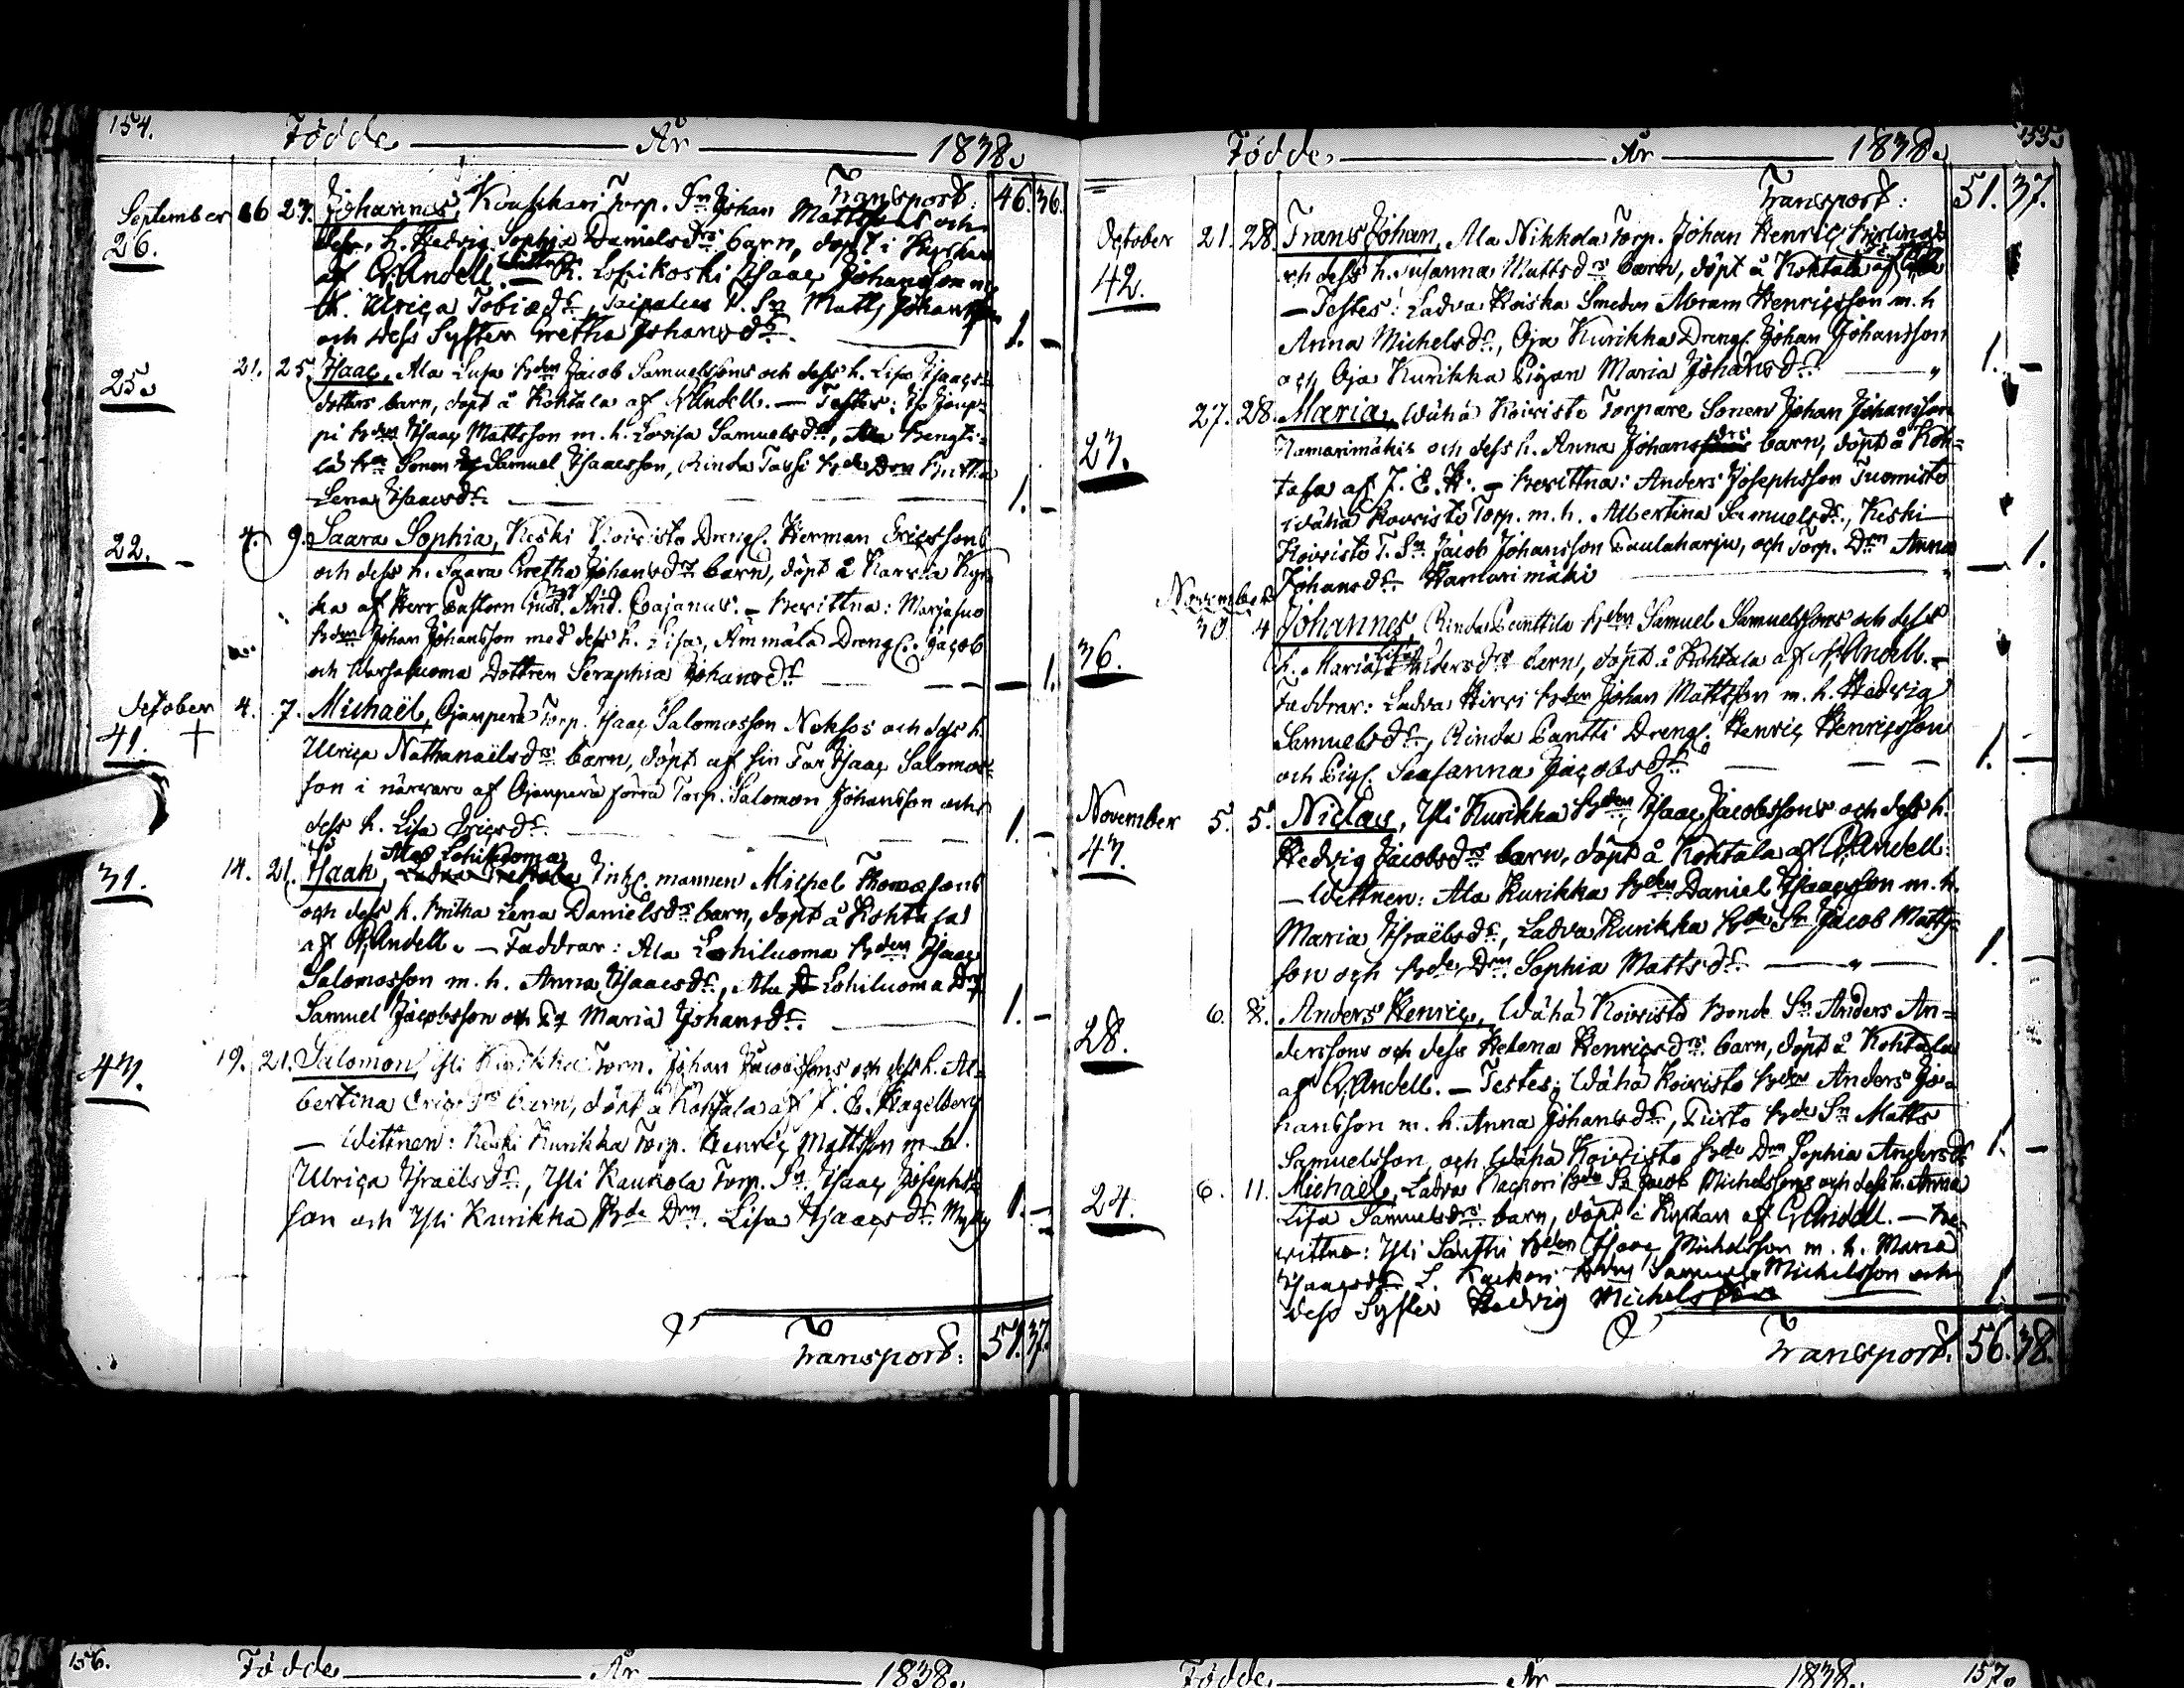 154. Födde År 1838.
Transport: 46. 36.
September 16 27. Johannes, Torp. Sn Johan Mattssons och
26. dess h. Hedvig Sophia Danielsdrs barn, döpt i Kyrkan
af G. Andell. — R. Lohikoski Isaac Johansson m.
h. Ulrica Tobiædr, T. Sn Matts Johansson
och dess Syster Gretha Johansdr. 1. —
25. 21. 25. Isaac, Ala Luja Bden Jacob Samuelssons och dess h. Lisa Isaacs-
dotters barn, döpt å Kohtala af Andell. — Testes: Yo Joup-
pi Bden Isaac Mattsson m. h. Lovisa Samuelsdr,
la Sonen Samuel Isaacsson, Rinda Tassi Bde Drn Britta
Lena Isaacsdr. 1. —
22. — 4. 9. Saara Sophia, Keski Koivisto Drengs. Herman Ericssons
och dess h. Saara Gretha Johansdrs barn, döpt å Karvia Kyr-
ka af Herr Pastorn Gust. And. Cajanus. — Bevittna: Marjasuo
Bden Johan Johansson med dess h. Lisa, Ämmälä Drengs. Jacob
och Warsaluoma Dottren Seraphia Johansdr — 1.
October 4. 7. Michaël, Ojanperä Torp. Isaac Salomosson Noksos och dess h.
41. + Ulrica Nathanaëlsdrs barn, döpt af sin Far Isaac Salomos-
son i närvaro af Ojanperä förra Torp. Salomon Johansson och
dess h. Lisa Ericsdr. 1. —
Ala Lohiluoma
31. 14. 21. Isaak, Inhs. mannen Michel Thomæsons
och dess h. Britha Lena Danielsdrs barn, döpt å Kohtala
af G. Andell. — Faddrar: Ala Lohiluoma Bden Isaac
Salomosson m. h. Anna Isaacsdr, Ala Lohiluoma Drg
Samuel Jacobsson och Pg Maria Johansdr. 1. —
47. 19. 21. Salomon, Yli Kurikka Torp. Johan Jacobssons och dess h. Al-
bertina Ericsdrs barn, döpt å Kohtala af J. E. Hagelberg
— Wittnen: Keski Kurikka Torp. Henric Mattsson m. h.
Ulrica Israëlsdr, Yli Kaukola Torp. Sn. Isaac Josephs-
son och Yli Kurikka Bde Drn. Lisa Isaacsdr 1. —
Transport: 51. 37.
Födde, År 1838. 155.
Transport: 51. 37.
October 21. 28. Frans Johan, Ala Nikkola Torp. Johan Henric
42. och dess h. Susanna Mattsdrs barn, döpt å Kohtala af
— Testes: Ladva Koiska Smeden Abram Henricsson m. h
Anna Michelsdr., Oja Kurikka Drengs. Johan Johansson
och Oja Kurikka Pigan Maria Johansdr. 1. —
27. 28. Maria, Wähä Koivisto Torpare Sonen Johan Johansson
27. Hamarimäkis och dess h. Anna Johansdrs barn, döpt å Koh-
tala af J. E. H. — Bevittna: Anders Josephsson Tuomisto
Wähä Koivisto Torp. m. h. Albertina Samuelsdr., Keski
Koivisto T. Sn Jacob Johansson Paulaharju, och Torp. Drn Anna
Johansdr Hamarimäki — 1.
November
36. 30 4 Johannes, Rinda Penttilä Bden Samuel Samuelssons och dess
h. Maria Lisa Andersdrs barn, döpt å Kohtala af G. Andell. —
Faddrar: Ladva Hirvi Bden Johan Mattsson m. h. Hedvig
Samuelsdr, Rinda Pantti Drengs. Henric Henricsson
och Pigs. Susanna Jacobsdr 1. —
November 5. 5. Niclas, Yli Kurikka Bden Isaac Jacobssons och dess h.
47. Hedvig Jacobsdrs barn, döpt å Kohtala af G. Andell.
— Wittnen: Ala Kurikka Bden Daniel Isaacsson m. h.
Maria Israëlsdr, Ladva Kurikka Bde Sn Jacob Matts-
son och Bde Drn Sophia Mattsdr. 1. —
28. 6. 8. Anders Henric, Wähä Koivisto Bonde Sn Anders An-
derssons och dess Helena Henricsdrs barn, döpt å Kohtala
af G. Andell. — Testes: Wähä Koivisto Bden Anders Jo-
hansson m. h. Anna Johansdr, Bde Sn Matts
Samuelsson, och Wähä Koivisto Bde Drn Sophia Andersdr 1. —
24. 6. 11. Michaël, Ladva Bde Sn Jacob Michelssons och dess h. Anna
Lisa Samuelsdrs barn, döpt i Kyrkan af G. Andell. — Be-
vittna: Yli Bden Isaac Michelsson m. h. Maria
Isaacsdr L. Samuel Michelsson och
dess Syster Hedvig Michelsdr 1 —
Transport. 56. 38.
156. Födde År 1838.
Födde, År 1838. 157.